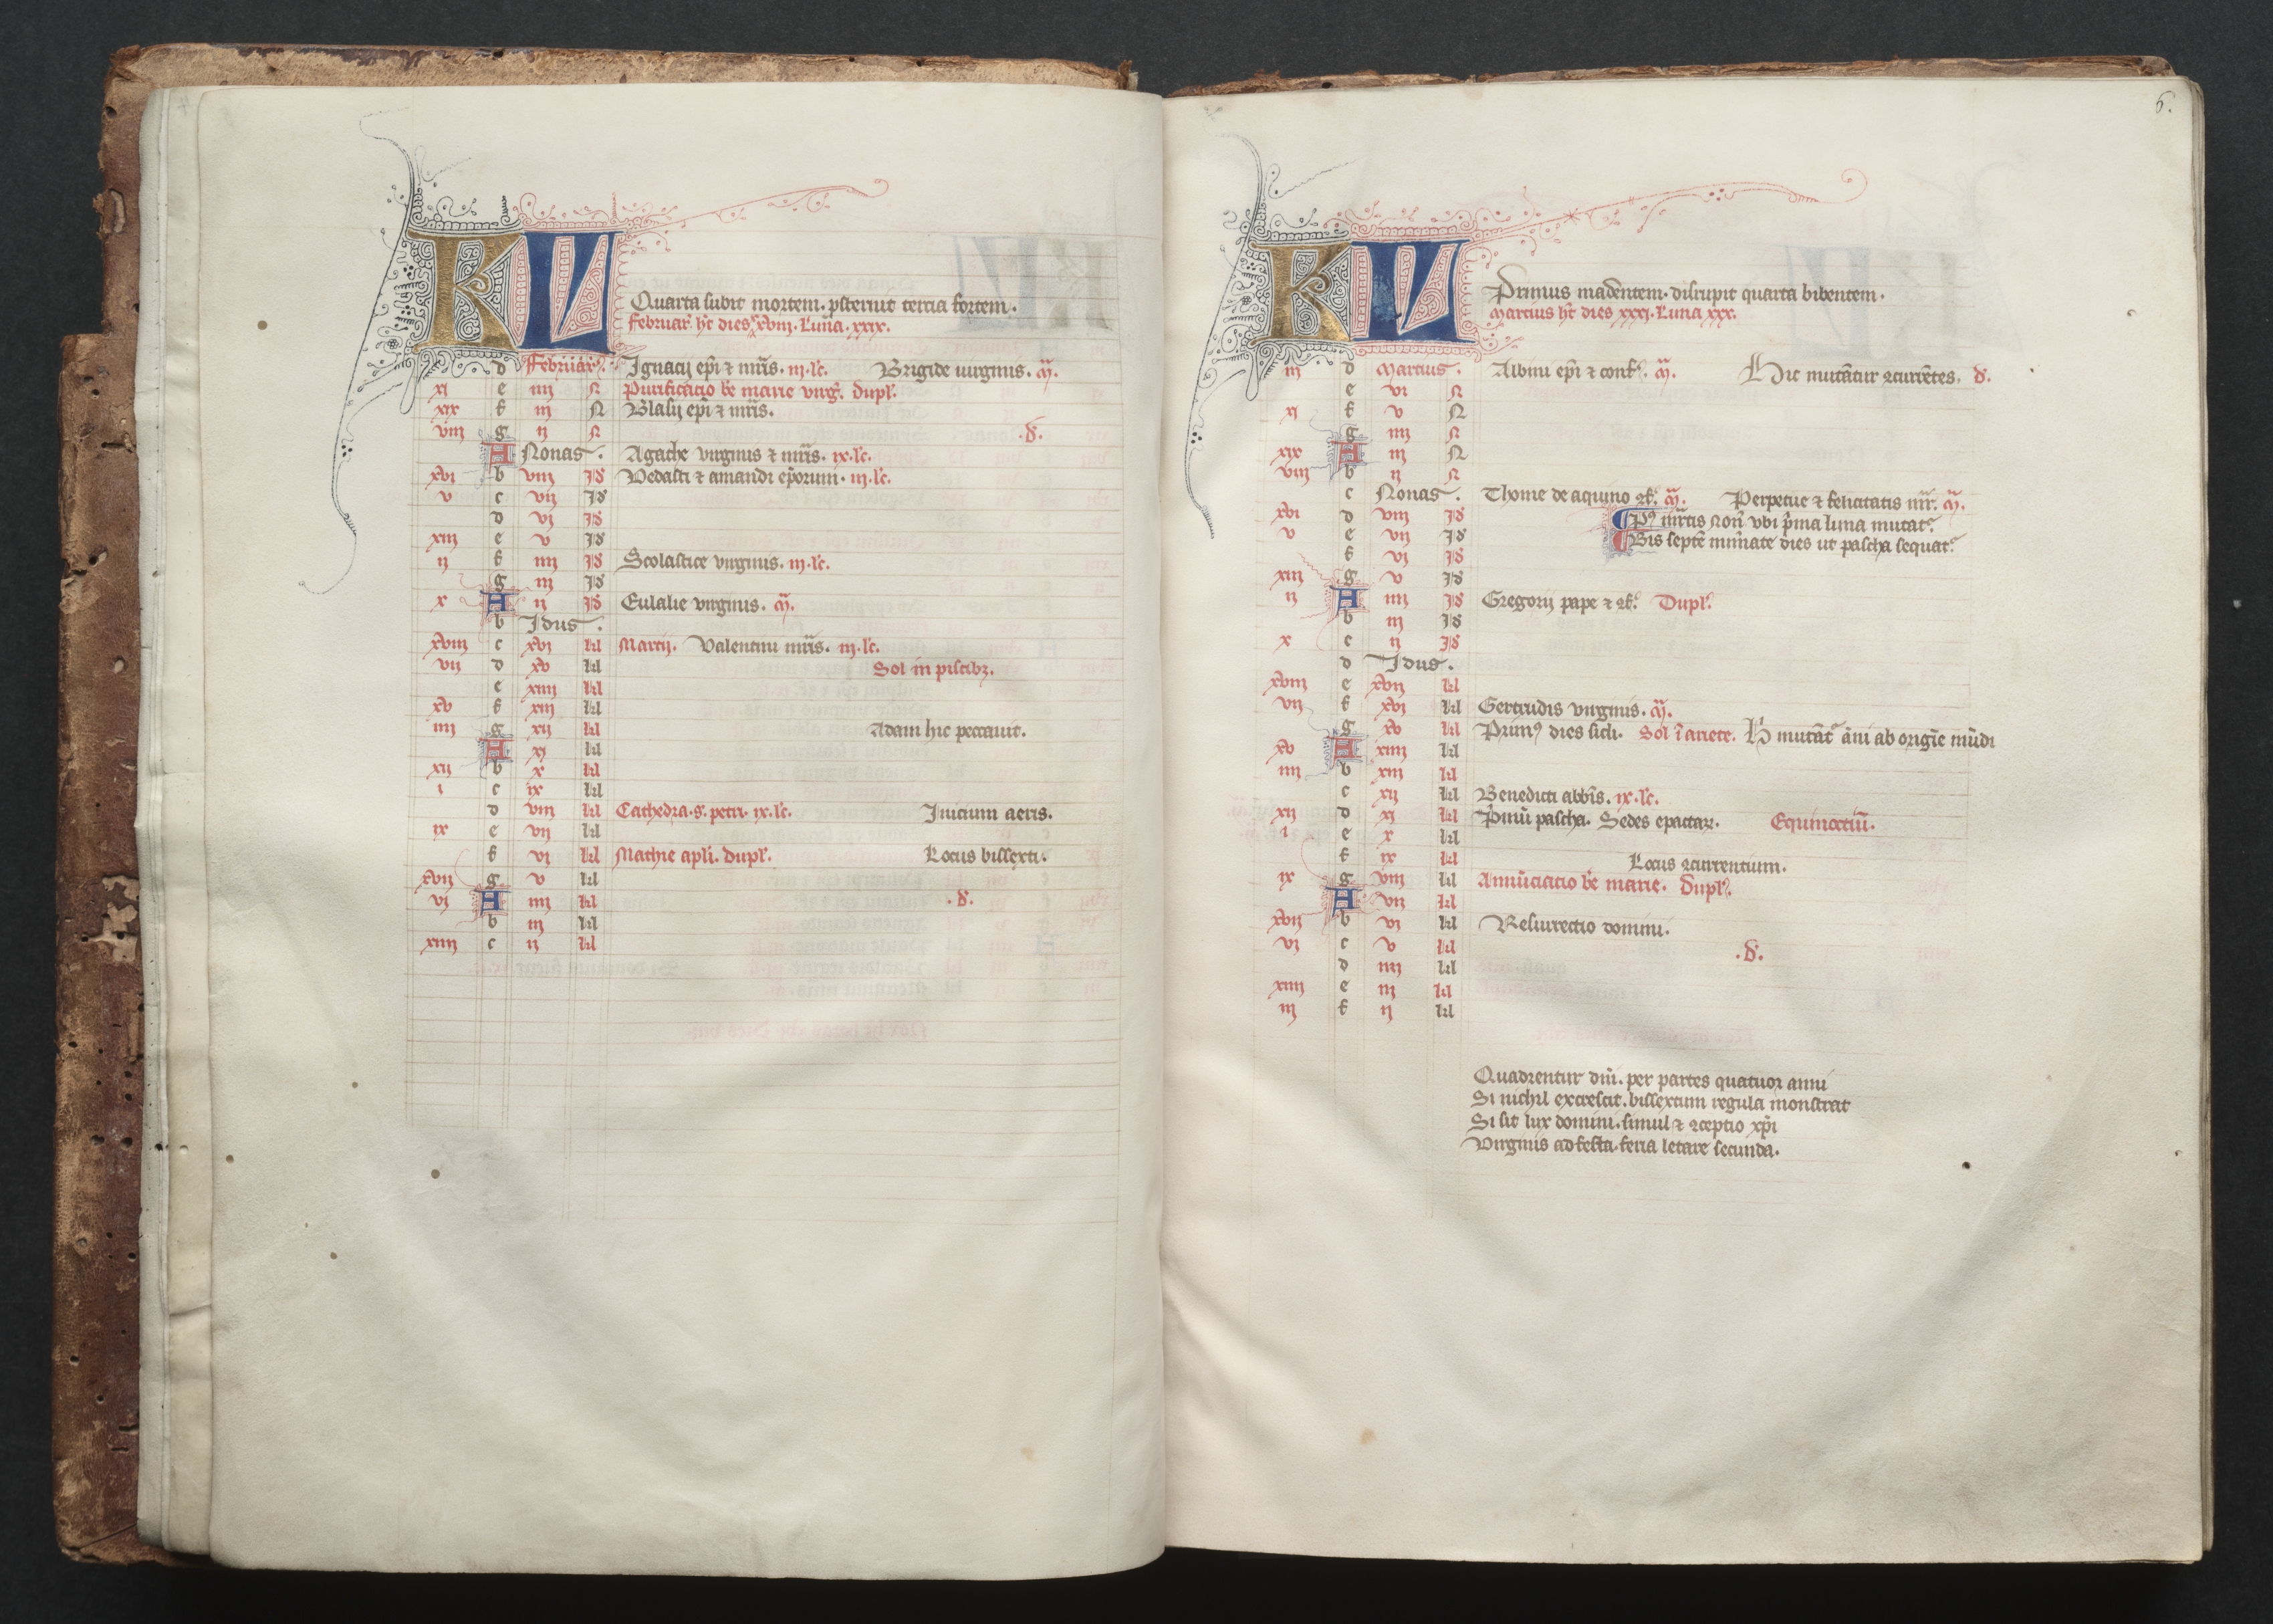 KL
Quarta subit mortem. psternit tercia fortem.
Februar' hꝫ dies xxviij. Luna. xxix.
d Februari9. Ignacij epī ⁊ mr̄is. iij. lc̄. Brigide uirginis. m̄.
xi e iiij N Purificacio bē marie virḡ. dupl'.
xix f iij N Blasij epī ⁊ mr̄is.
viij g ij N .d'.
A Nonas. Agathe virginis ⁊ mr̄is. ix. lc̄.
xvi b viij Id Vedasti ⁊ amandi ep̄orum. iij. lc̄.
v c vij Id
d vi Id
xiij e v Id
ij f iiij Id Scolastice virginis. iij. lc̄.
g iij Id
x A ij Id Eulalie virginis. m̄.
b Idus.
xviij c xvi kl Marcij. Valentini mr̄is. iij. lc̄.
vij d xv kl Sol in piscibꝫ.
e xiiij kl
xv f xiij kl
iiij g xij kl Adam hic peccauit.
A xi kl
xij b x kl
i c ix kl
d viij kl Cathedra. s. petri. ix. lc̄. Inicium aeris.
ix e vij kl
f vi kl Mathie apl̄i. dupl'. Locus bissexti.
xvij g v kl
vi A iiij kl .d'.
b iij kl
xiiij c ij kl
6.
KL
Primus madentem. disrupit quarta bibentem.
Marcius hꝫ dies xxxi. Luna xxx.
iij d Marcius. Albini epī ⁊ conf'. m̄. Hic mutātur ꝯcurrētes. d'.
e vi N
xi f v N
g iiij N
xix A iij N
viij b ij N
c Nonas. Thome de aquino ꝯf'. m̄. Perpetue ⁊ felicitatis mr̄. m̄.
xvi d viij Id P9 mr̄cis non̄ vbi p̄ma luna mutat'.
v e vij Id Bis septē nūmate dies ut pascha sequat'.
f vi Id
xiij g v Id
ij A iiij Id Gregorij pape ⁊ ꝯf'. Dupl'.
b iij Id
x c ij Id
d Idus.
xviij e xvij kl
vij f xvi kl Gertrudis virginis. m̄.
g xv kl Prim9 dies scli. Sol ī ariete. H' mutāt' āni ab origīe mūdi
xv A xiiij kl
iiij b xiij kl
c xij kl Benedicti abbīs. ix. lc̄.
xij d xi kl P̄mū pascha. Sedes epactaꝝ. Equinoctiū.
i e x kl
f ix kl Locus ꝯcurrentium.
ix g viij kl Annūciacio bē marie. Dupl'.
A vij kl
xvij b vi kl Resurrectio domini.
vi c v kl .d'.
d iiij kl
xiiij e iij kl
iij f ij kl
Quadrentur dn̄i. per partes quatuor anni
Si nichil excrescit. bissextum regula monstrat
Si sit lux domini. simul ⁊ ꝯceptio xp̄i
Virginis ad festa. feria letare secunda.